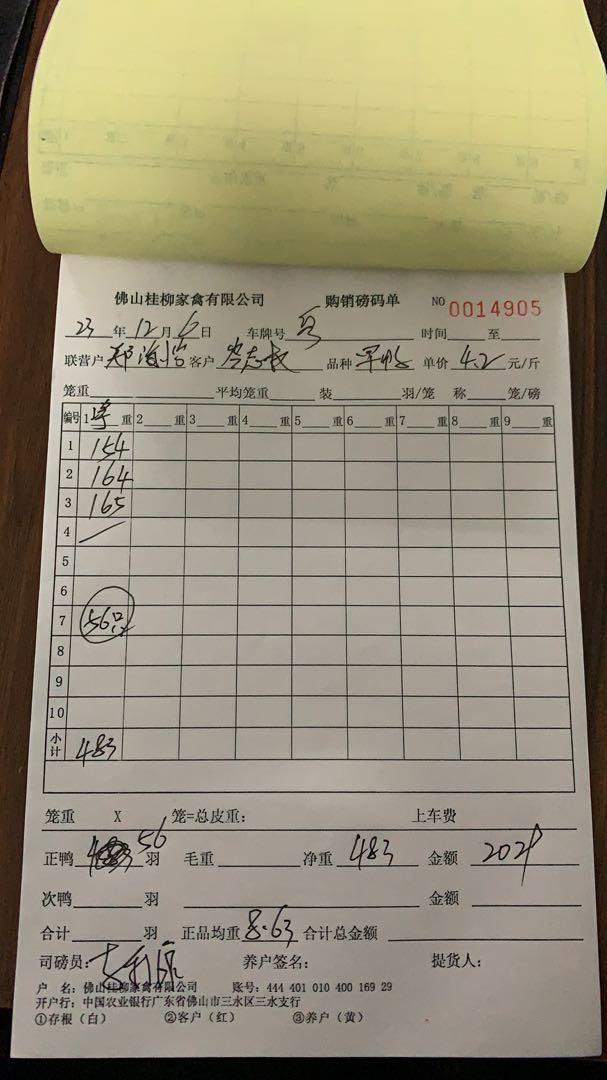 佛山桂柳家禽有限公司 购销磅码单 NO 0014905
23 年 12 月 6 日 车牌号 时间 至
联营户 郑海怡 客户 岑志成 品种 单价 4.2 元/斤
笼重 平均笼重 装 羽/笼 称 笼/磅
编号 1 重 2 重 3 重 4 重 5 重 6 重 7 重 8 重 9 重
1 154
2 164
3 165
4
5
6
7 56只
8
9
10
小计 483
笼重 X 笼=总皮重: 上车费
正鸭 56 羽 毛重 净重 483 金额
次鸭 羽 金额
合计 羽 正品均重 8.63 合计总金额
司磅员: 养户签名: 提货人:
户 名: 佛山桂柳家禽有限公司 账号: 444 401 010 400 169 29
开户行: 中国农业银行广东省佛山市三水区三水支行
①存根(白) ②客户(红) ③养户(黄)